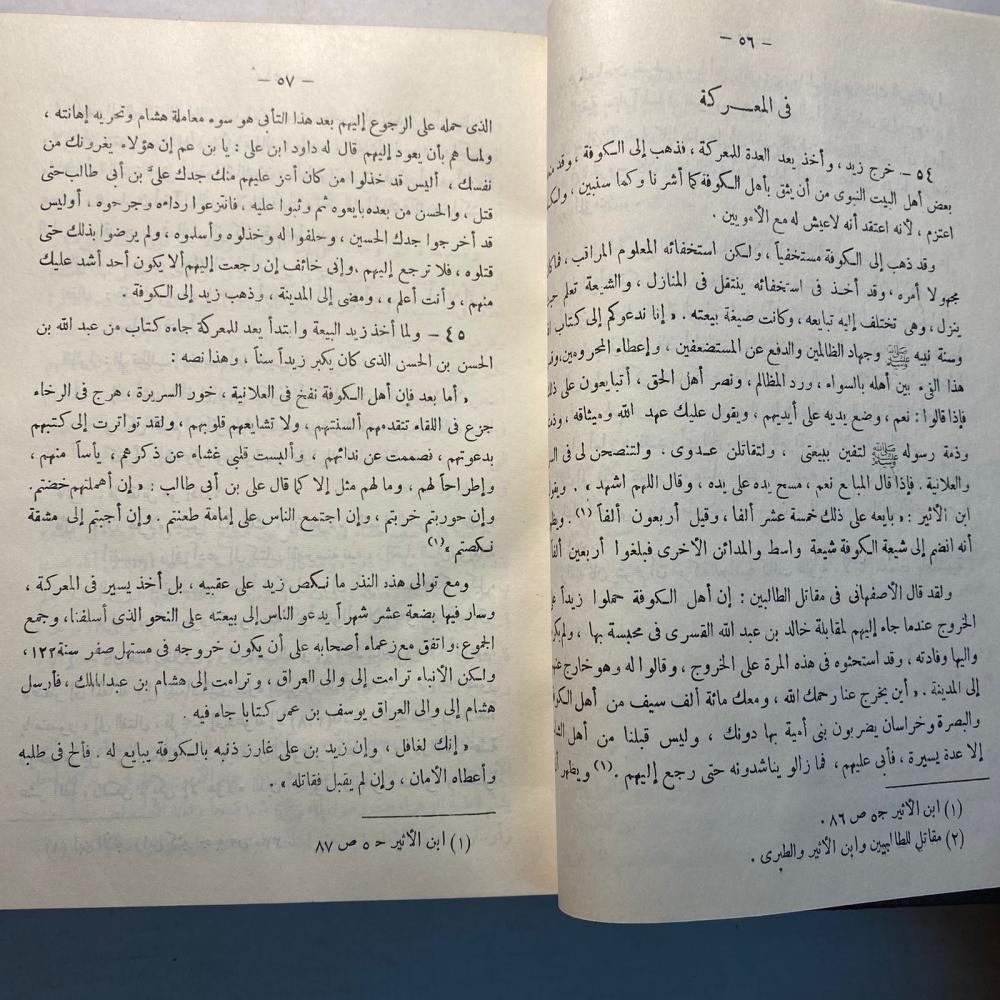 — ٥٦ —
فى المعـــركة
٥٤ — خرج زيد ، وأخذ يعد العدة للمعركة ، فذهب إلى الكوفة ، وقد
بعض أهل البيت النبوى من أن يثق بأهل الكوفة كما أشرنا وكما سنبين ، ولكنه
اعتزم ، لأنه اعتقد أنه لاعيش له مع الأمويين .
وقد ذهب إلى الكوفة مستخفياً ، ولكن استخفائه المعلوم المراقب ،
مجهولا أمره ، وقد أخذ فى استخفائه ينتقل فى المنازل ، والشيعة تعلم
ينزل ، وهى تختلف إليه تبايعه ، وكانت صيغة بيعته . « إنا ندعوكم إلى كتاب
وسنة نبيه ﷺ وجهاد الظالمين والدفع عن المستضعفين ، وإعطاء المحرومين
هذا الفىء بين أهله بالسواء ، ورد المظالم ، ونصر أهل الحق ، أتبايعون على
فإذا قالوا : نعم ، وضع يديه على أيديهم ، ويقول عليك عهد الله وميثاقه ،
وذمة رسوله ﷺ لتفين ببيعتى ، ولتقاتلن عـدوى . ولتنصحن لى فى
والعلانية . فإذا قال المبايع نعم ، مسح يده على يده ، وقال اللهم اشهد » .
ابن الأثير : « بايعه على ذلك خمسة عشر ألفا ، وقيل أربعون ألفاً (١) .
أنه انضم إلى شيعة الكوفة شيعة واسط والمدائن الأخرى فبلغوا أربعين
ولقد قال الأصفهانى فى مقاتل الطالبين : إن أهل الكوفة حملوا زيداً
الخروج عندما جاء إليهم لمقابلة خالد بن عبد الله القسرى فى محبسة بها ،
واليها وفادته ، وقد استحثوه فى هذه المرة على الخروج ، وقالوا له وهو خارج
إلى المدينة . « أين يخرج عنا رحمك الله ، ومعك مائة ألف سيف من أهل
والبصرة وخراسان يضربون بنى أمية بها دونك ، وليس قبلنا من أهل
إلا عدة يسيرة ، فأبى عليهم ، فما زالو يناشدونه حتى رجع إليهم . (١) ويظهر
(١) ابن الأثير جـ ٥ ص ٨٦ .
(٢) مقاتل للطالبيين وابن الأثير والطبرى .
— ٥٧ —
الذى حمله على الرجوع إليهم بعد هذا التأبى هو سوء معاملة هشام وتحريه إهانته ،
ولما هم بأن يعود إليهم قال له داود ابن على : يا بن عم إن هؤلاء يغرونك من
نفسك ، أليس قد خذلوا من كان أعز عليهم منك جدك علىَّ بن أبى طالب حتى
قتل ، والحسن من بعده بايعوه ثم وثبوا عليه . فانتزعوا رداءه وجرحوه . أوليس
قد أخرجوا جدك الحسين ، وحلفوا له وخذلوه وأسلموه ، ولم يرضوا بذلك حتى
قتلوه ، فلا ترجع إليهم . وإنى خائف إن رجعت إليهم ألا يكون أحد أشد عليك
منهم ، وأنت أعلم » ، ومضى إلى المدينة ، وذهب زيد إلى الكوفة .
٤٥ — ولما أخذ زيد البيعة وابتدأ يعد للمعركة جاءه كتاب من عبد الله بن
الحسن بن الحسن الذى كان يكبر زيداً سناً ، وهذا نصه :
« أما بعد فإن أهل الكوفة نفخ فى العلانية ، خور السريرة ، هرج فى الرخاء
جزع فى اللقاء تتقدمهم ألسنتهم ، ولا تشايعهم قلوبهم ، ولقد تواترت إلى كتبهم
بدعوتهم ، فصممت عن ندائهم ، وألبست قلبى غشاء عن ذكرهم ، يأساً منهم ،
وإطراحاً لهم ، وما لهم مثل إلا كما قال على بن أبى طالب : « إن أهملتهم خضتم .
وإن حوربتم خرتم ، وإن اجتمع الناس على إمامة طعنتم . وإن أجبتم إلى مشقة
نكصتم » (١)
ومع توالى هذه النذر ما نكص زيد على عقبيه ، بل أخذ يسير فى المعركة ،
وسار فيها بضعة عشر شهراً يدعو الناس إلى بيعته على النحو الذى أسلفنا ، وجمع
الجموع . واتفق مع زعماء أصحابه على أن يكون خروجه فى مستهل صفر سنة ١٢٢ ،
ولكن الأنباء ترامت إلى والى العراق ، وترامت إلى هشام بن عبدالملك ، فأرسل
هشام إلى والى العراق يوسف بن عمر كتابا جاء فيه .
« إنك لغافل ، وإن زيد بن على غارز ذنبه بالكوفة يبايع له . فألح فى طلبه
وأعطاه الأمان ، وإن لم يقبل فقاتله » .
(١) ابن الأثير حـ ٥ ص ٨٧